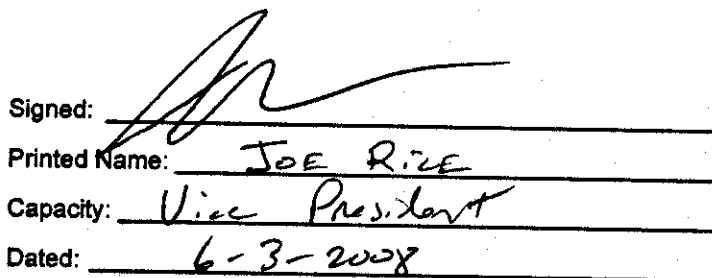 Signed:
Printed Name: JOE RICE
Capacity: Vice President
Dated: 6-3-2008